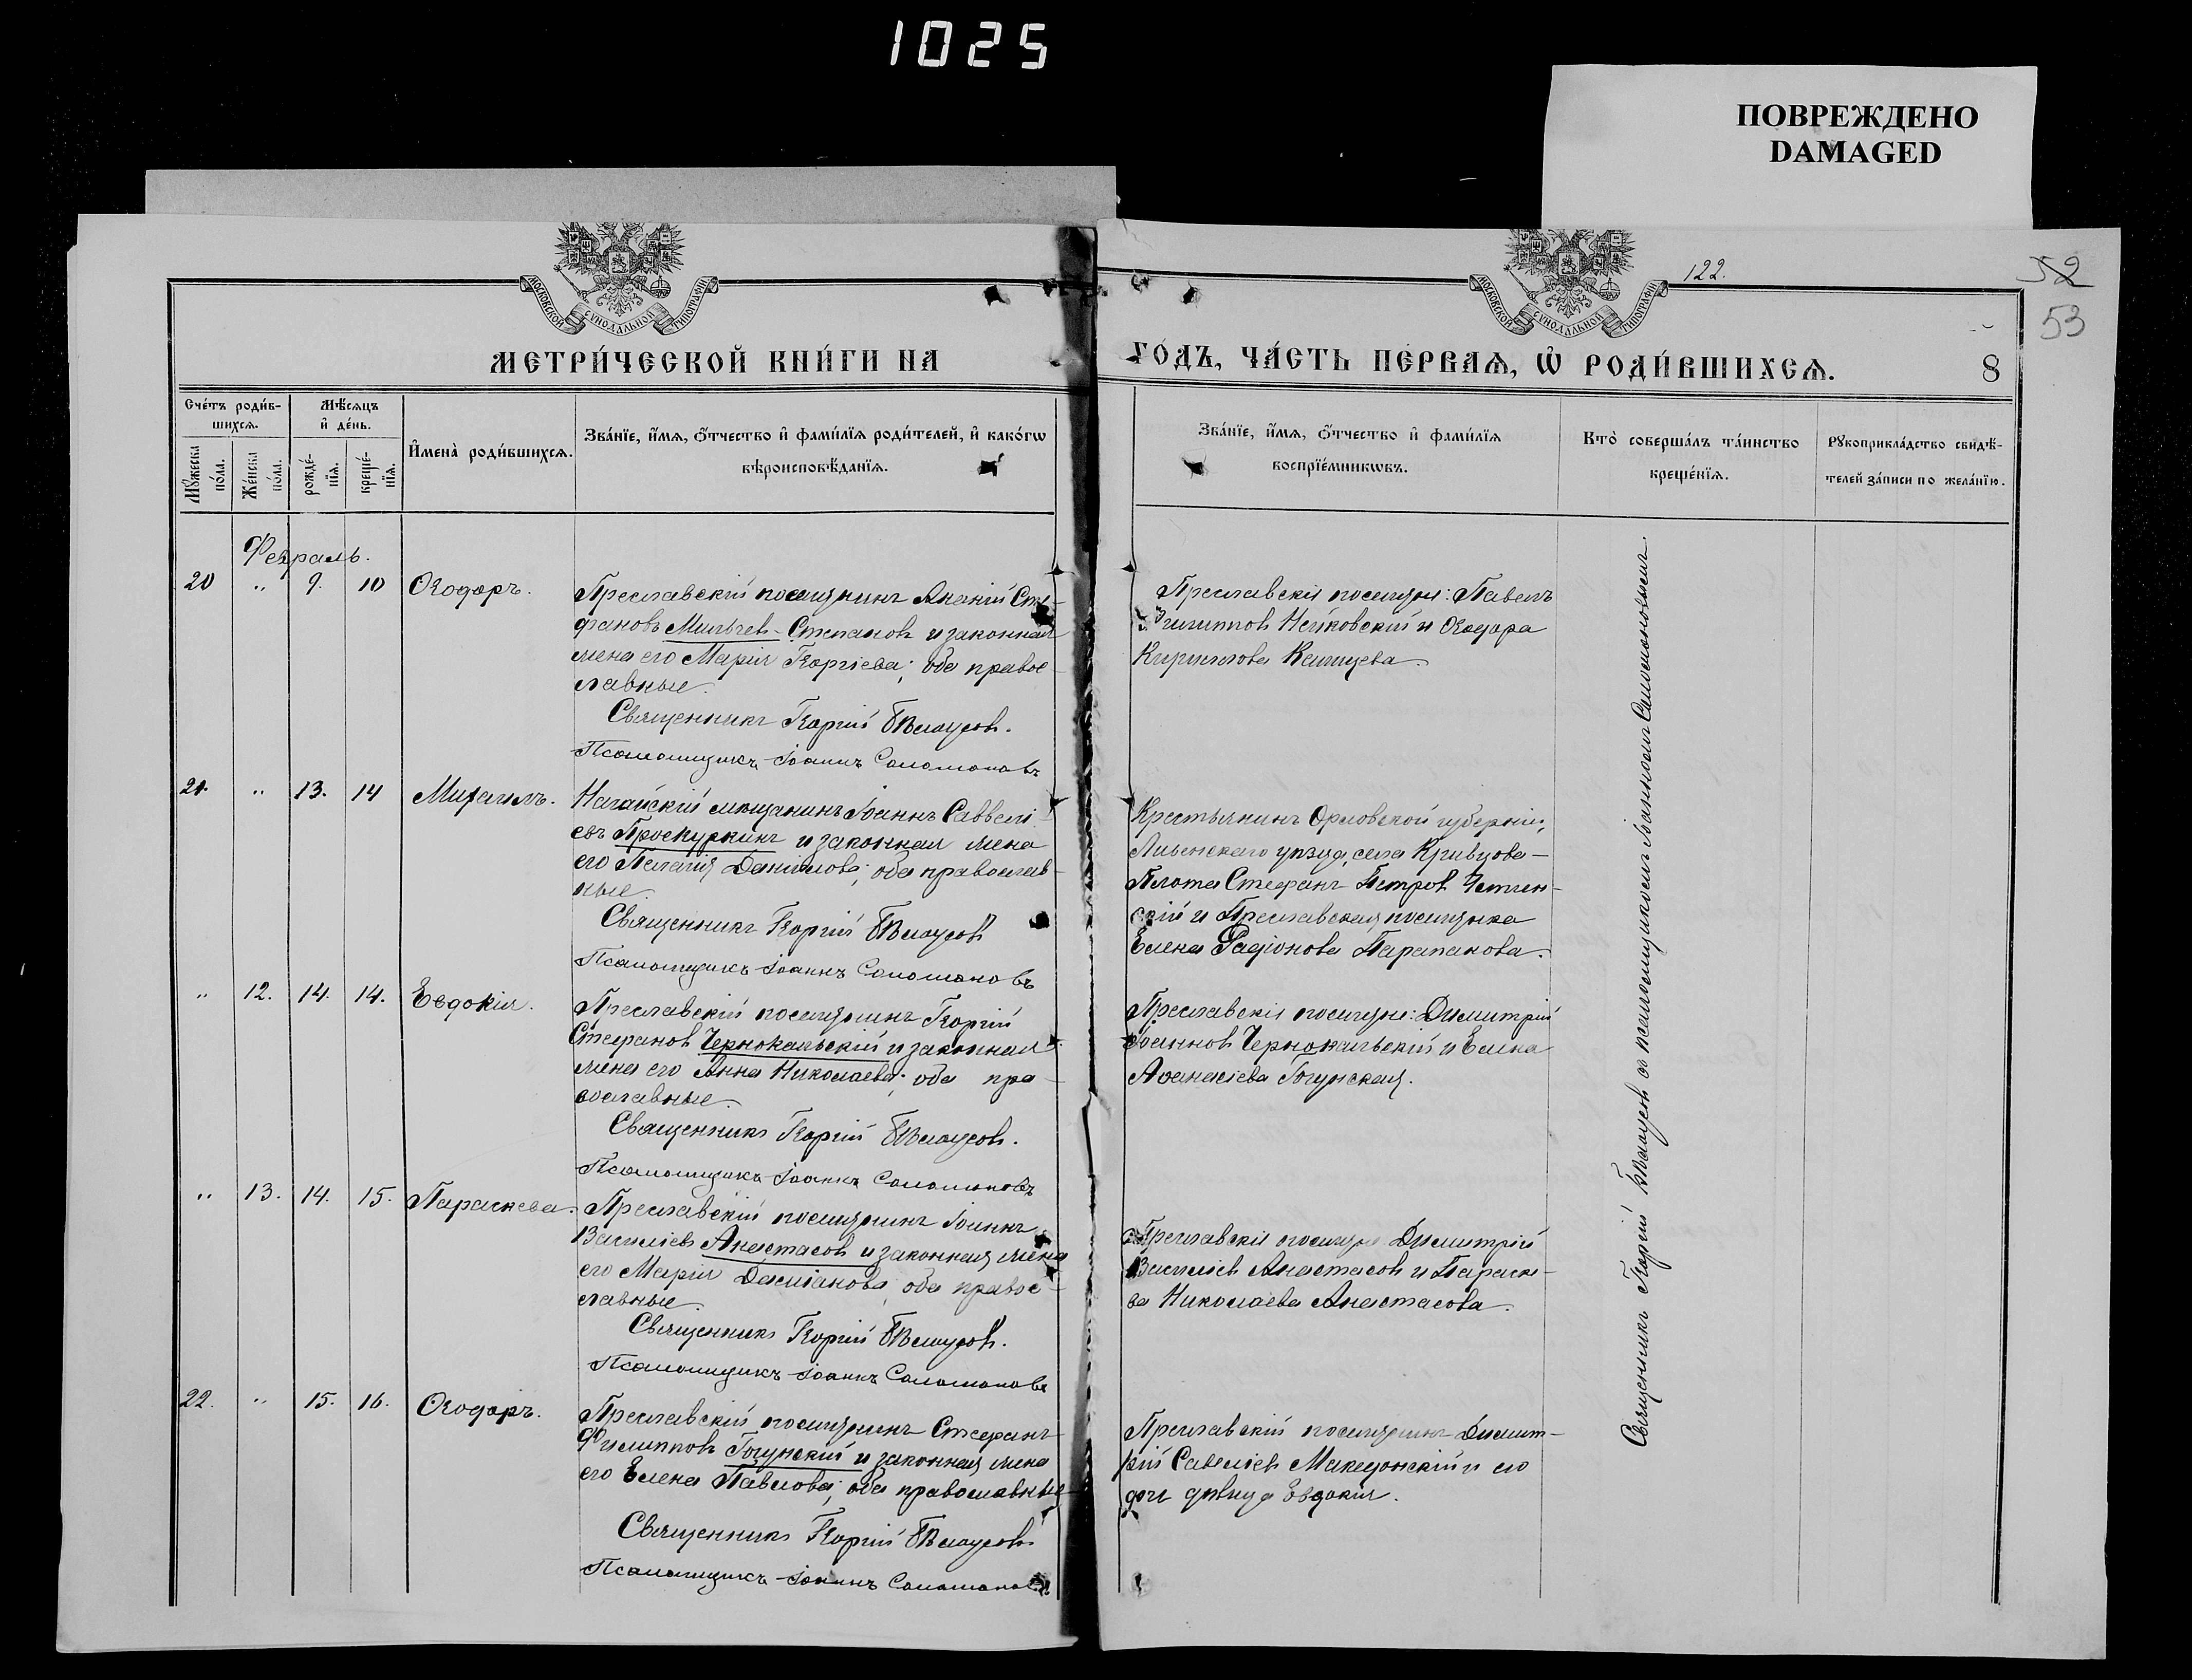 1025
ПОВРЕЖДЕНО
DAMAGED
МОСКОВСКОЙ СѴНОДАЛЬНОЙ ТИПОГРАФІИ
МОСКОВСКОЙ СѴНОДАЛЬНОЙ ТИПОГРАФІИ
122.
52
53
МЕТРИ́ЧЕСКОЙ КНИ́ГИ НА
ГО́ДЪ, ЧА́СТЬ ПЕ́РВАѦ, Ѡ҆ РОДИ́ВШИХСѦ.
8
Сче́тъ роди́в-
шихсѧ.
Мѣ́сѧцъ
и҆ де́нь.
Мꙋ́жеска по́ла.
Же́нска по́ла.
рожде́-нїѧ.
креще́-нїѧ.
И҆мена̀ роди́вшихсѧ.
Зва́нїе, и҆́мѧ, ѻ҆́тчество и҆ фами́лїѧ роди́телей, и҆ како́гѡ
вѣроисповѣ́данїѧ.
Зва́нїе, и҆́мѧ, ѻ҆́тчество и҆ фами́лїѧ
воспрїе́мникѡвъ.
Кто̀ соверша́лъ та́инство
креще́нїѧ.
Рꙋкоприкла́дство свидѣ́-
телей за́писи по жела́нїю.
Февраль.
20 " 9. 10 Ѳеодоръ.
Преславскій поселянинъ Ананій Сте-
фановъ Мильчев-Степанов и законная
жена его Марія Георгіева; оба правос-
лавные.
Священникъ Георгій Бѣлоусов.
Псаломщикъ Іоаннъ Соломоновъ
Преславскіе поселяне: Павелъ
Филиппов Нейковскій и Ѳеодора
Кириллова
21. " 13. 14 Михаилъ.
Ногайскій мѣщанинъ Іоаннъ Саввелі-
евъ Проскуркинъ и законная жена
его Пелагія Даніилова; оба православ-
ные.
Священникъ Георгій Бѣлоусов
Псаломщикъ Іоаннъ Соломоновъ
Крестьянинъ Орловской губерніи,
Ливенскаго уѣзда, села Кривцова-
Плота Стефанъ Петров
и Преславская поселянка
Елена Родіонова Парапанова.
" 12. 14. 14. Евдокія.
Преславскій поселянинъ Георгій
Стефанов Чернокальскій и законная
жена его Анна Николаева; оба пра-
вославные.
Священникъ Георгій Бѣлоусов.
Псаломщикъ Іоаннъ Соломоновъ
Преславскіе поселяне: Димитрій
Іоаннов Чернокальскій и Елена
Аѳанасіева Гогунская.
" 13. 14. 15. Параскева.
Преславскій поселянинъ Іоаннъ
Василіев Анастасов и законная жена
его Марія Даміанова, оба правос-
лавные.
Священникъ Георгій Бѣлоусов.
Псаломщикъ Іоаннъ Соломоновъ
Преславскіе поселяне Димитрій
Василіев Анастасов и Параске-
ва Николаева Анастасова.
22. " 15. 16. Ѳеодоръ.
Преславскій поселянинъ Стефанъ
Филиппов Гогунскій и законная жена
его Елена Павлова; оба православные
Священникъ Георгій Бѣлоусов
Псаломщикъ Іоаннъ Соломоновъ
Преславскій поселянинъ Димит-
рій Савеліев Македонскій и его
дочь дѣвица Евдокія.
Священникъ Георгій Бѣлоусов съ псаломщикомъ Іоанномъ Соломоновымъ.